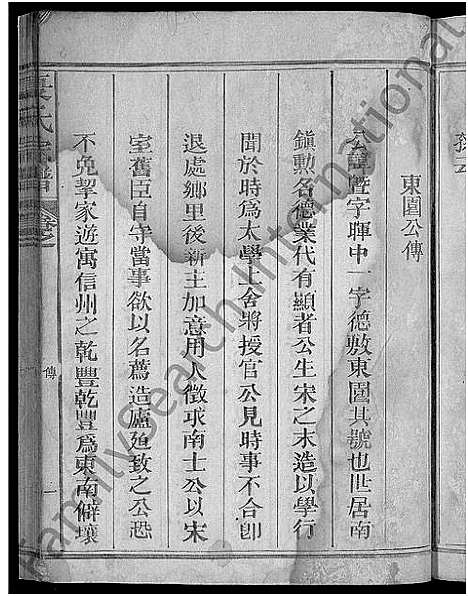 東園公傳
公諱暨字暉中一字德敷東園其號也世居南
鎮勲名德業代有顯者公生宋之末造以學行
聞於時爲太學上舍將授官公見時事不合卽
退處鄉里後新主加意用人徵求南士公以宋
室舊臣自守當事欲以名薦造廬廹致之公恐
不免挈家遊寓信州之乾豐乾豐爲東南僻壤
氏宗譜
卷之
傳
一
FamilySearch International